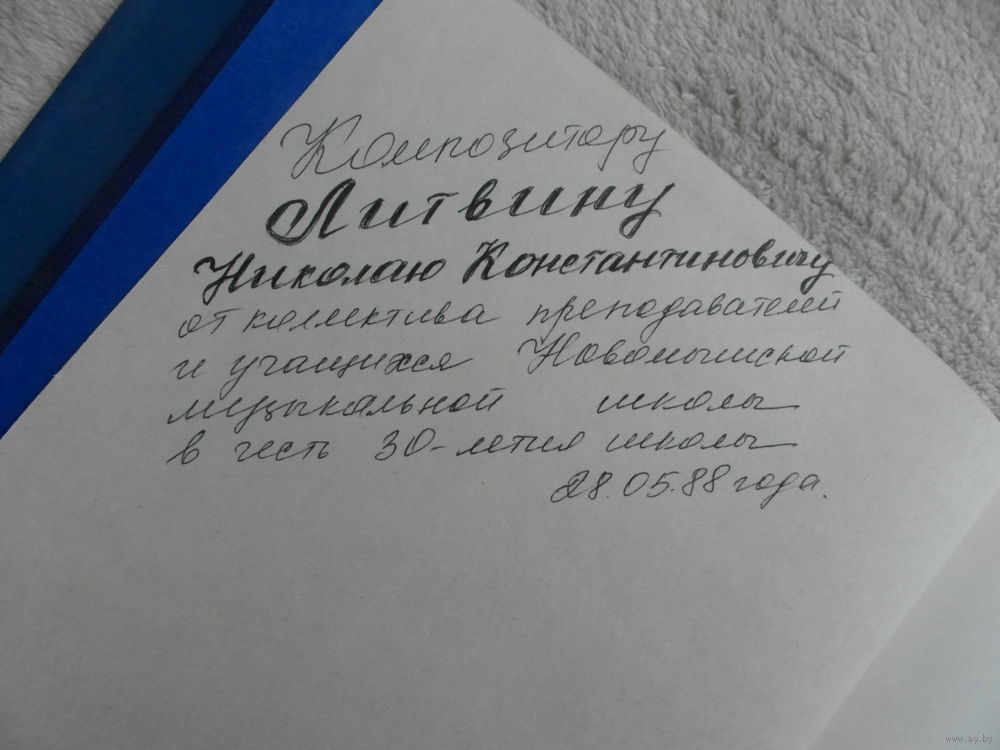 Композитору
Литвину
Николаю Константиновичу
от коллектива преподавателей
и учащихся Новомышской
музыкальной школы
в честь 30-летия школы
28.05.88 года.
www.ay.by